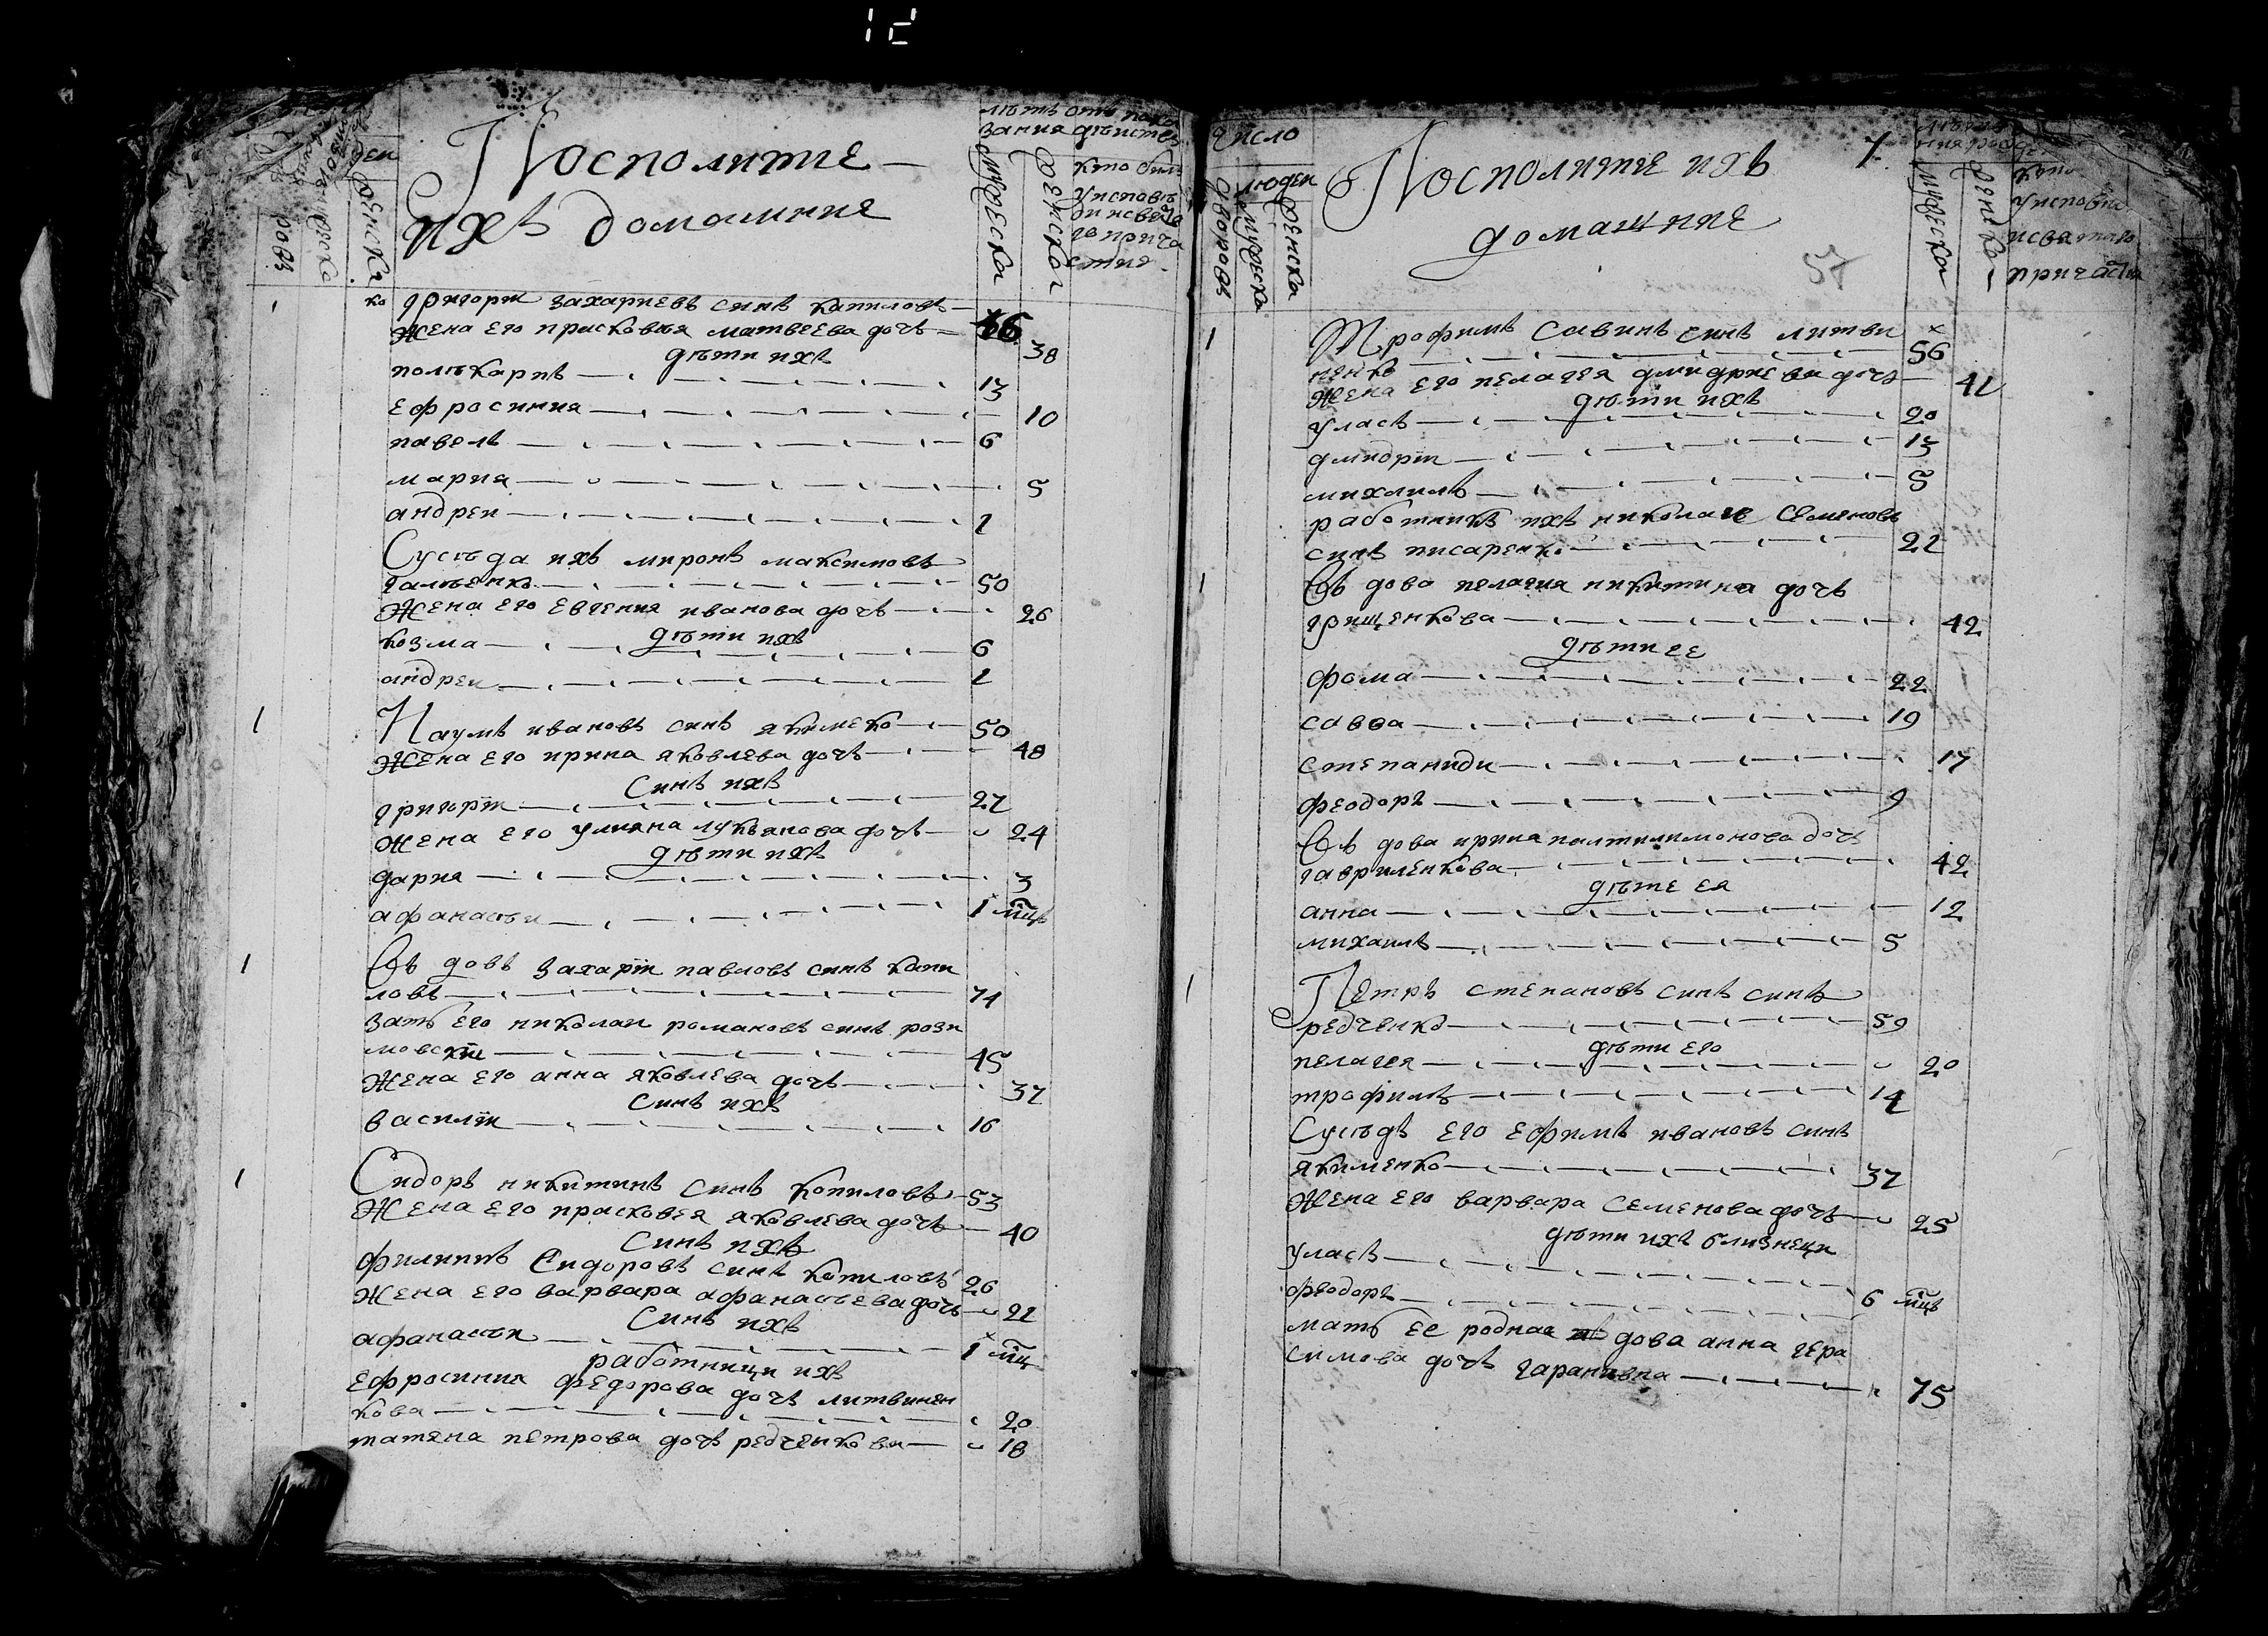 Посполитие
ихъ домашния
лѣтъ отъ
зания
мужеска
женска
кто билъ
у исповѣ
ди и свята
го прича
стия
женска
Григорїи Захариевъ синъ Копиловъ 46
Жена его Присковия Матвеева дочъ 38
дѣти ихъ
Поликарпъ 13
Ефросиния 10
Павелъ 6
Мария 5
Андреи 1
Сусѣда ихъ Миронъ Максимовъ
Галѣенко 50
Жена его Евгения Иванова дочъ 26
дѣти ихъ
Козма 6
Андреи 1
1 Наумъ Ивановъ синъ Якимеко 50
Жена его Ирина Яковлева дочъ 48
Синъ ихъ
Григорїи 27
Жена его Улияна Лукьянова дочъ 24
дѣти ихъ
Дария 3
Афанасѣи 1 мцъ
1 Въдовъ Захарїи Павловъ синъ Копи
ловъ 74
Зать его Николаи Романовъ синъ Рози
мовскїи 45
Жена его Анна Яковлева дочъ 37
Синъ ихъ
Василїи 16
1 Сидоръ Никитинъ синъ Копиловъ 53
Жена его Присковея Яковлева дочъ 40
Синъ ихъ
Филиппъ Сидоровъ синъ Копиловъ 26
Жена его Варвара Афанасѣева дочъ 21
Синъ ихъ
Афанасѣи 1 мцъ
работници ихъ
Ефросиния Федорова дочъ Литвинен
кова 20
Татяна Петрова дочъ Редченкова 18
Посполитие ихъ
домашние
7
57
Число
дворовъ
людеи
мужеска
женска
мужеска
женско
у исповѣди
и святаго
причастия
1 Трофимъ Савинъ синъ Литви
ненко 56
Жена его Пелагея Дмидриева дочъ 41
дѣти ихъ
Уласъ 20
Дмидрїи 13
Михаилъ 5
работникъ ихъ Николае Семеновъ
синъ Писаренко 21
1 Въдова Пелагия Никитина дочъ
Грищенкова 42
дѣти ее
Фома 22
Савва 19
Степанида 17
Феодоръ 9
Въдова Ирина Палтилимонова дочъ
Гавриленкова 42
дѣте ея
Анна 12
Михаилъ 5
1 Петръ Степановъ синъ синъ
Редченко 59
дѣти его
Пелагея 20
Трофимъ 14
Сусѣдъ его Ефимъ Ивановъ синъ
Якименко 37
Жена его Варвара Семенова дочъ 25
дѣти ихъ близнеци
Уласъ
Феодоръ 6 мцъ
Мать ее родная вдова Анна Гера
симова дочъ Гаранивна 75